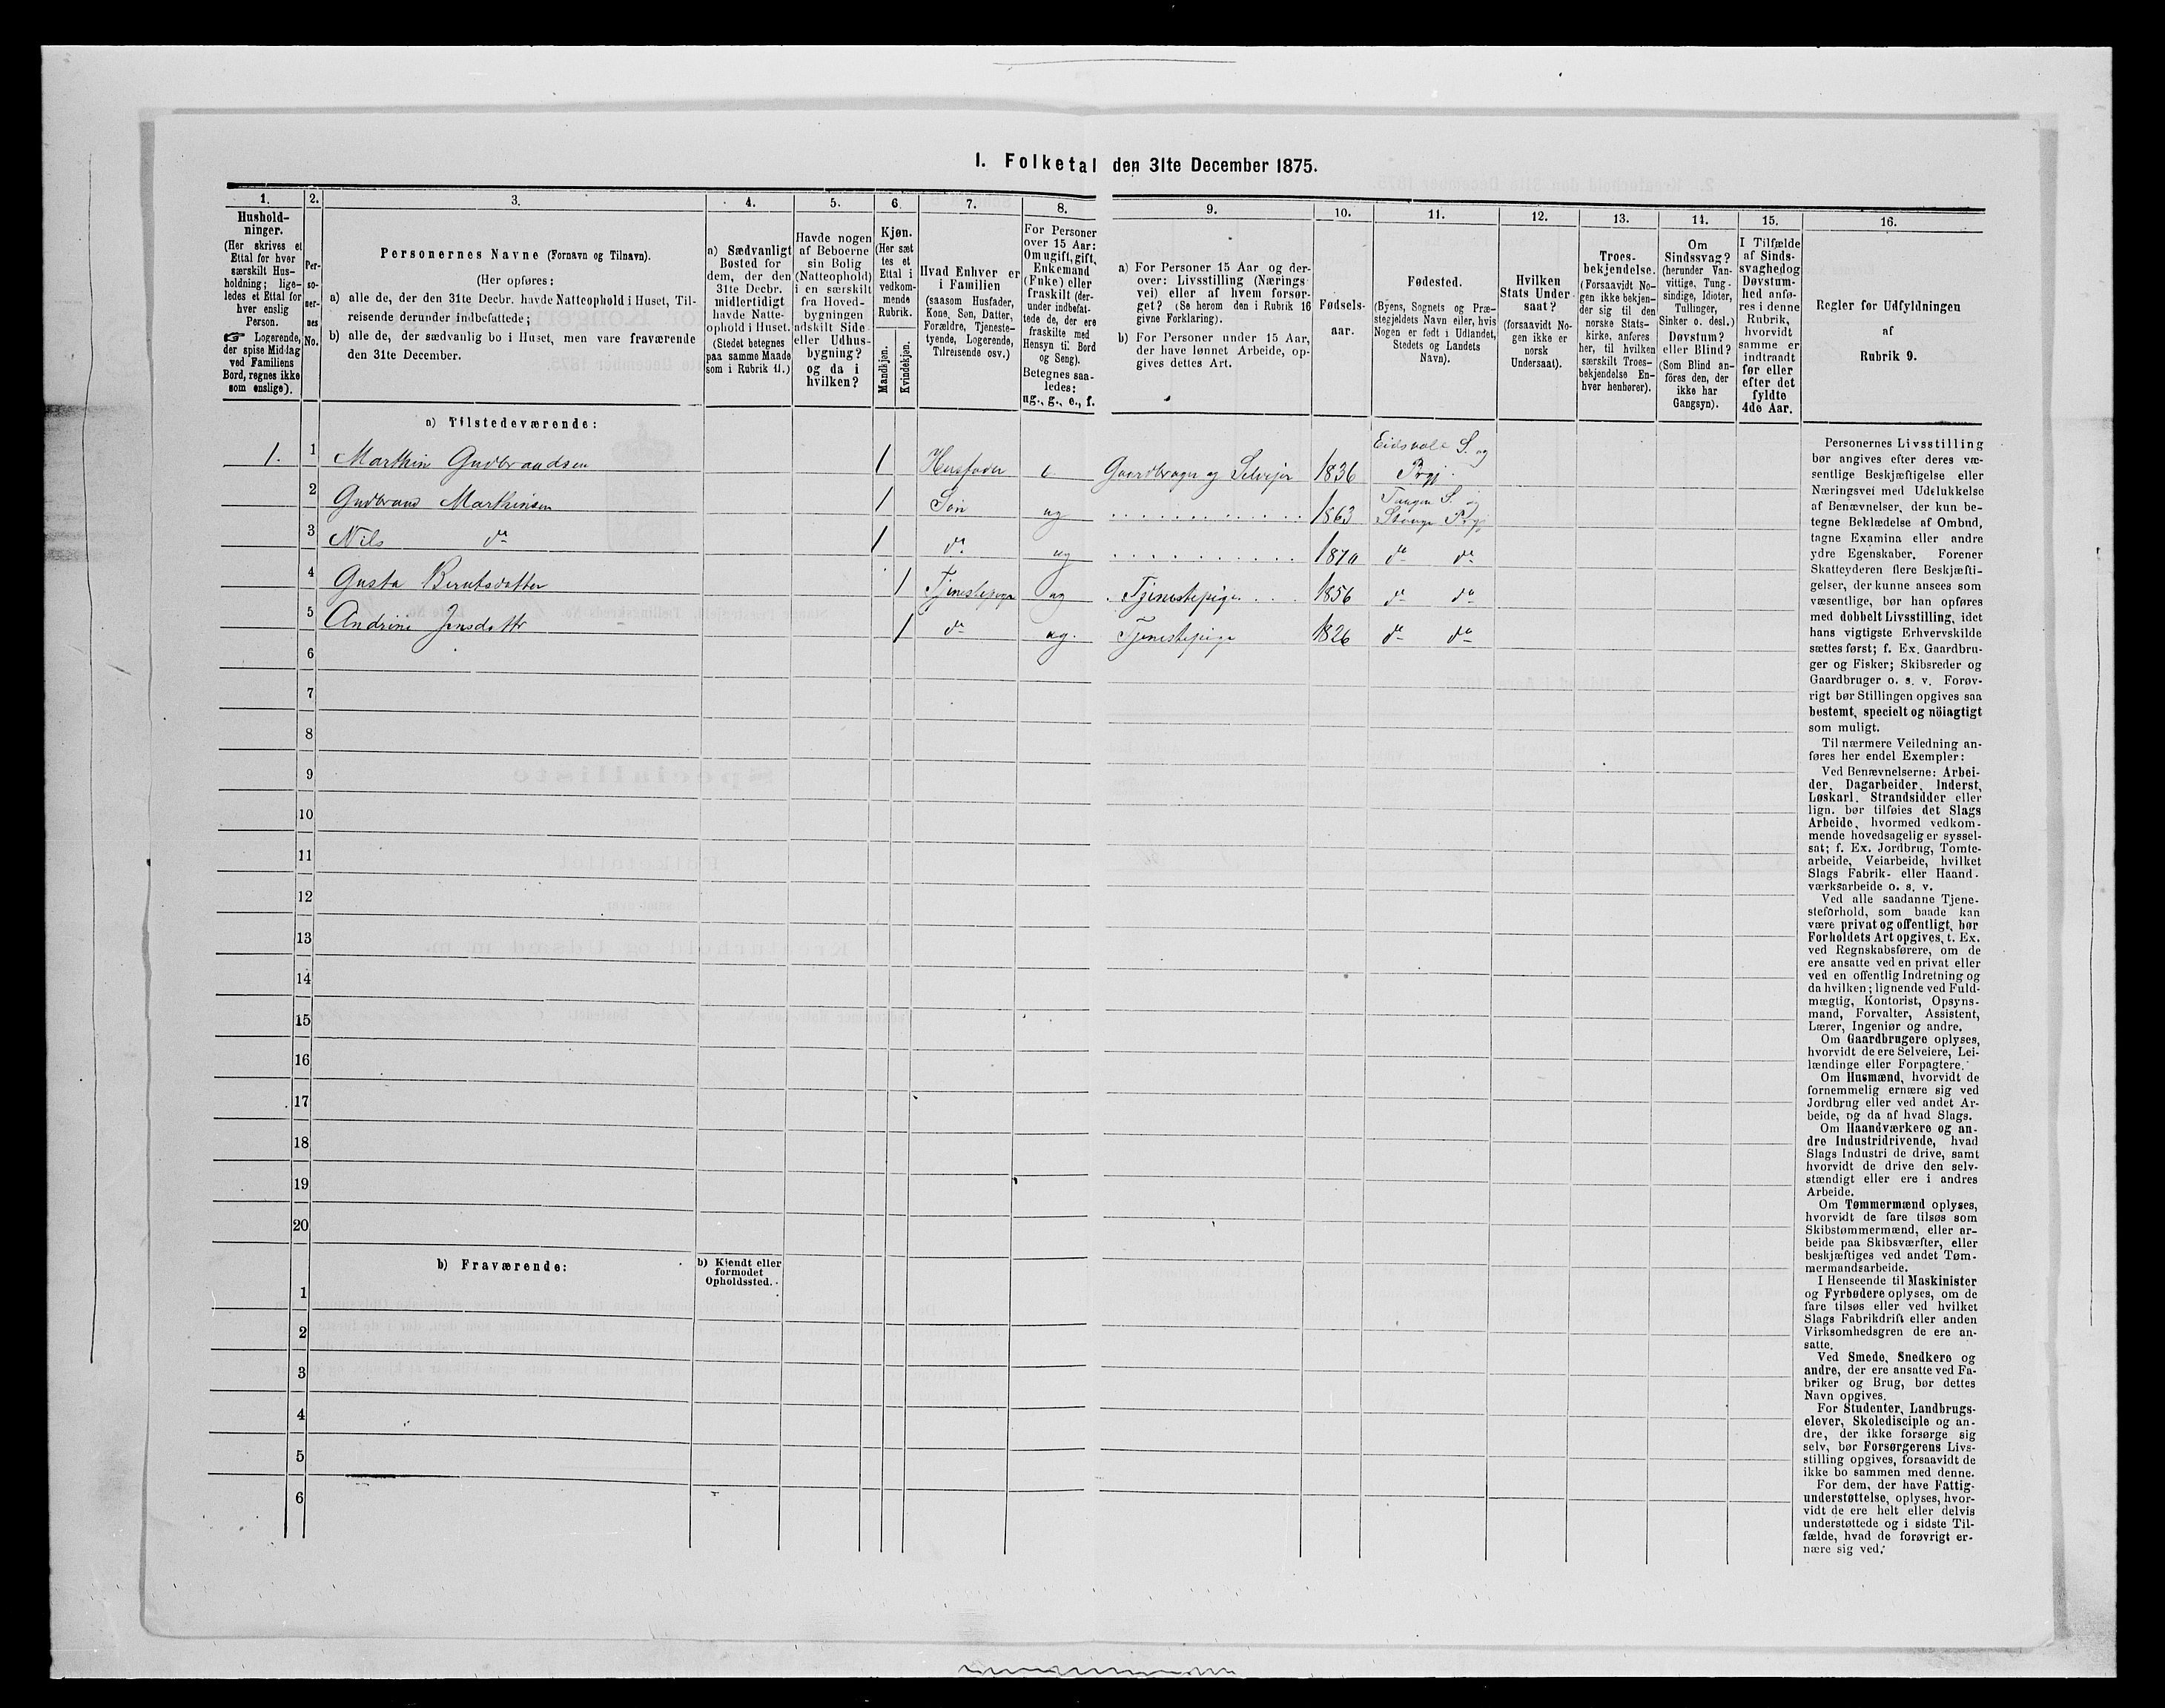 I. Folketal den 31te December 1875.
1.
Hushold-
ninger.
(Her skrives et
Ettal for hver
særskilt Hus-
holdning; lige-
ledes et Ettal for
hver enslig
Person.
☞ Logerende,
der spise Middag
ved Familiens
Bord, regnes ikke
som enslige).
2.
Per-
so-
ner-
nes
No.
3.
Personernes Navne (Fornavn og Tilnavn).
(Her opføres:
a) alle de, der den 31te Decbr. havde Natteophold i Huset, Til-
reisende derunder indbefattede;
b) alle de, der sædvanlig bo i Huset, men vare fraværende
den 31te December.
4.
a) Sædvanligt
Bosted for
dem, der den
31te Decbr.
midlertidigt
havde Natte-
ophold i Huset.
(Stedet betegnes
paa samme Maade
som i Rubrik 11.)
5.
Havde nogen
af Beboerne
sin Bolig
(Natteophold)
i en særskilt
fra Hoved-
bygningen
adskilt Side
eller Udhus-
bygning?
og da i
hvilken?
6.
Kjøn.
(Her sæt
tes et
Ettal i
vedkom-
mende
Rubrik.
Mandkjøn.
Kvindekjøn.
7.
Hvad Enhver er
i Familien
(saasom Husfader,
Kone, Søn, Datter,
Forældre, Tjeneste-
tyende, Logerende,
Tilreisende osv.)
8.
For Personer
over 15 Aar:
Om ugift, gift,
Enkemand
(Enke) eller
fraskilt (der-
under indbefat-
tede de, der ere
fraskilte med
Hensyn til Bord
og Seng).
Betegnes saa-
ledes:
ug., g., e., f.
9.
a) For Personer 15 Aar og der-
over: Livsstilling (Nærings-
vei) eller af hvem forsør-
get? (Se herom den i Rubrik 16
givne Forklaring).
b) For Personer under 15 Aar,
der have lønnet Arbeide, op-
gives dettes Art.
10.
Fødsels-
aar.
11.
Fødested.
(Byens, Sognets og Præ-
stegjeldets Navn eller, hvis
Nogen er født i Udlandet,
Stedets og Landets
Navn).
12.
Hvilken
Stats Under-
saat?
(forsaavidt No-
gen ikke er
norsk
Undersaat).
13.
Troes-
bekjendelse.
(Forsaavidt No-
gen ikke bekjen-
der sig til den
norske Stats-
kirke, anføres
her, til hvilken
særskilt Troes-
bekjendelse En-
hver henhører).
14.
Om
Sindssvag?
(herunder Van-
vittige, Tung-
sindige, Idioter,
Tullinger,
Sinker o. desl.)
Døvstum?
eller Blind?
(Som Blind an-
føres den, der
ikke har
Gangsyn).
15.
I Tilfælde
af Sinds-
svaghed og
Døvstum-
hed anfø-
res i denne
Rubrik,
hvorvidt
samme er
indtraadt
før eller
efter det
fyldte
4de Aar.
16.
Regler for Udfyldningen
af
Rubrik 9.
a) Tilstedeværende:
1. 1 Marthin Gudbrandsen 1 Husfader e Gaardbruger og Selvejer 1836 Eidsvold S. og Prgj.
2 Gudbrand Marthinsen 1 Søn ug 1863 Tangen S. og Stange Prgj
3 Nils do 1 do ug 1870 do do
4 Gusta Berntsdatter 1 Tjenestepige ug Tjenestepige 1856 do do
5 Andrine Jensdattr 1 do ug. Tjenestepige 1826 do do
6
7
8
9
10
11
12
13
14
15
16
17
18
19
20
b) Fraværende:
b) Kjendt eller
formodet
Opholdssted.
1
2
3
4
5
6
Personernes Livsstilling
bør angives efter deres væ-
sentlige Beskjæftigelse eller
Næringsvei med Udelukkelse
af Benævnelser, der kun be-
tegne Beklædelse af Ombud,
tagne Examina eller andre
ydre Egenskaber. Forener
Skatteyderen flere Beskjæfti-
gelser, der kunne ansees som
væsentlige, bør han opføres
med dobbelt Livsstilling, idet
hans vigtigste Erhvervskilde
sættes først; f. Ex. Gaardbru-
ger og Fisker; Skibsreder og
Gaardbruger o. s. v. Forøv-
rigt bør Stillingen opgives saa
bestemt, specielt og nöiagtigt
som muligt.
Til nærmere Veiledning an-
føres her endel Exempler:
Ved Benævnelserne: Arbei-
der, Dagarbeider, Inderst,
Løskarl, Strandsidder eller
lign. bør tilføies det Slags
Arbeide, hvormed vedkom-
mende hovedsagelig er syssel-
sat; f. Ex. Jordbrug, Tomte-
arbeide, Veiarbeide, hvilket
Slags Fabrik- eller Haand-
værksarbeide o. s. v.
Ved alle saadanne Tjene-
steforhold, som baade kan
være privat og offentligt, bør
Forholdets Art opgives, t. Ex.
ved Regnskabsførere, om de
ere ansatte ved en privat eller
ved en offentlig Indretning og
da hvilken; lignende ved Fuld-
mægtig, Kontorist, Opsyns-
mand, Forvalter, Assistent,
Lærer, Ingeniør og andre.
Om Gaardbrugere oplyses,
hvorvidt de ere Selveiere, Lei-
lændinge eller Forpagtere.
Om Husmænd, hvorvidt de
fornemmelig ernære sig ved
Jordbrug eller ved andet Ar-
beide, og da af hvad Slags.
Om Haandværkere og an-
dre Industridrivende, hvad
Slags Industri de drive, samt
hvorvidt de drive den selv-
stændigt eller ere i andres
Arbeide.
Om Tømmermænd oplyses,
hvorvidt de fare tilsøs som
Skibstømmermænd, eller ar-
beide paa Skibsværfter, eller
beskjæftiges ved andet Tøm-
mermandsarbeide.
I Henseende til Maskinister
og Fyrbødere oplyses, om de
fare tilsøs eller ved hvilket
Slags Fabrikdrift eller anden
Virksomhedsgren de ere an-
satte.
Ved Smede, Snedkere og
andre, der ere ansatte ved Fa-
briker og Brug, bør dettes
Navn opgives.
For Studenter, Landbrugs-
elever, Skoledisciple og an-
dre, der ikke forsørge sig
selv, bør Forsørgerens Livs-
stilling opgives, forsaavidt de
ikke bo sammen med denne.
For dem, der have Fattig-
understøttelse, oplyses, hvor-
vidt de ere helt eller delvis
understøttede og i sidste Til-
fælde, hvad de forøvrigt er-
nære sig ved.